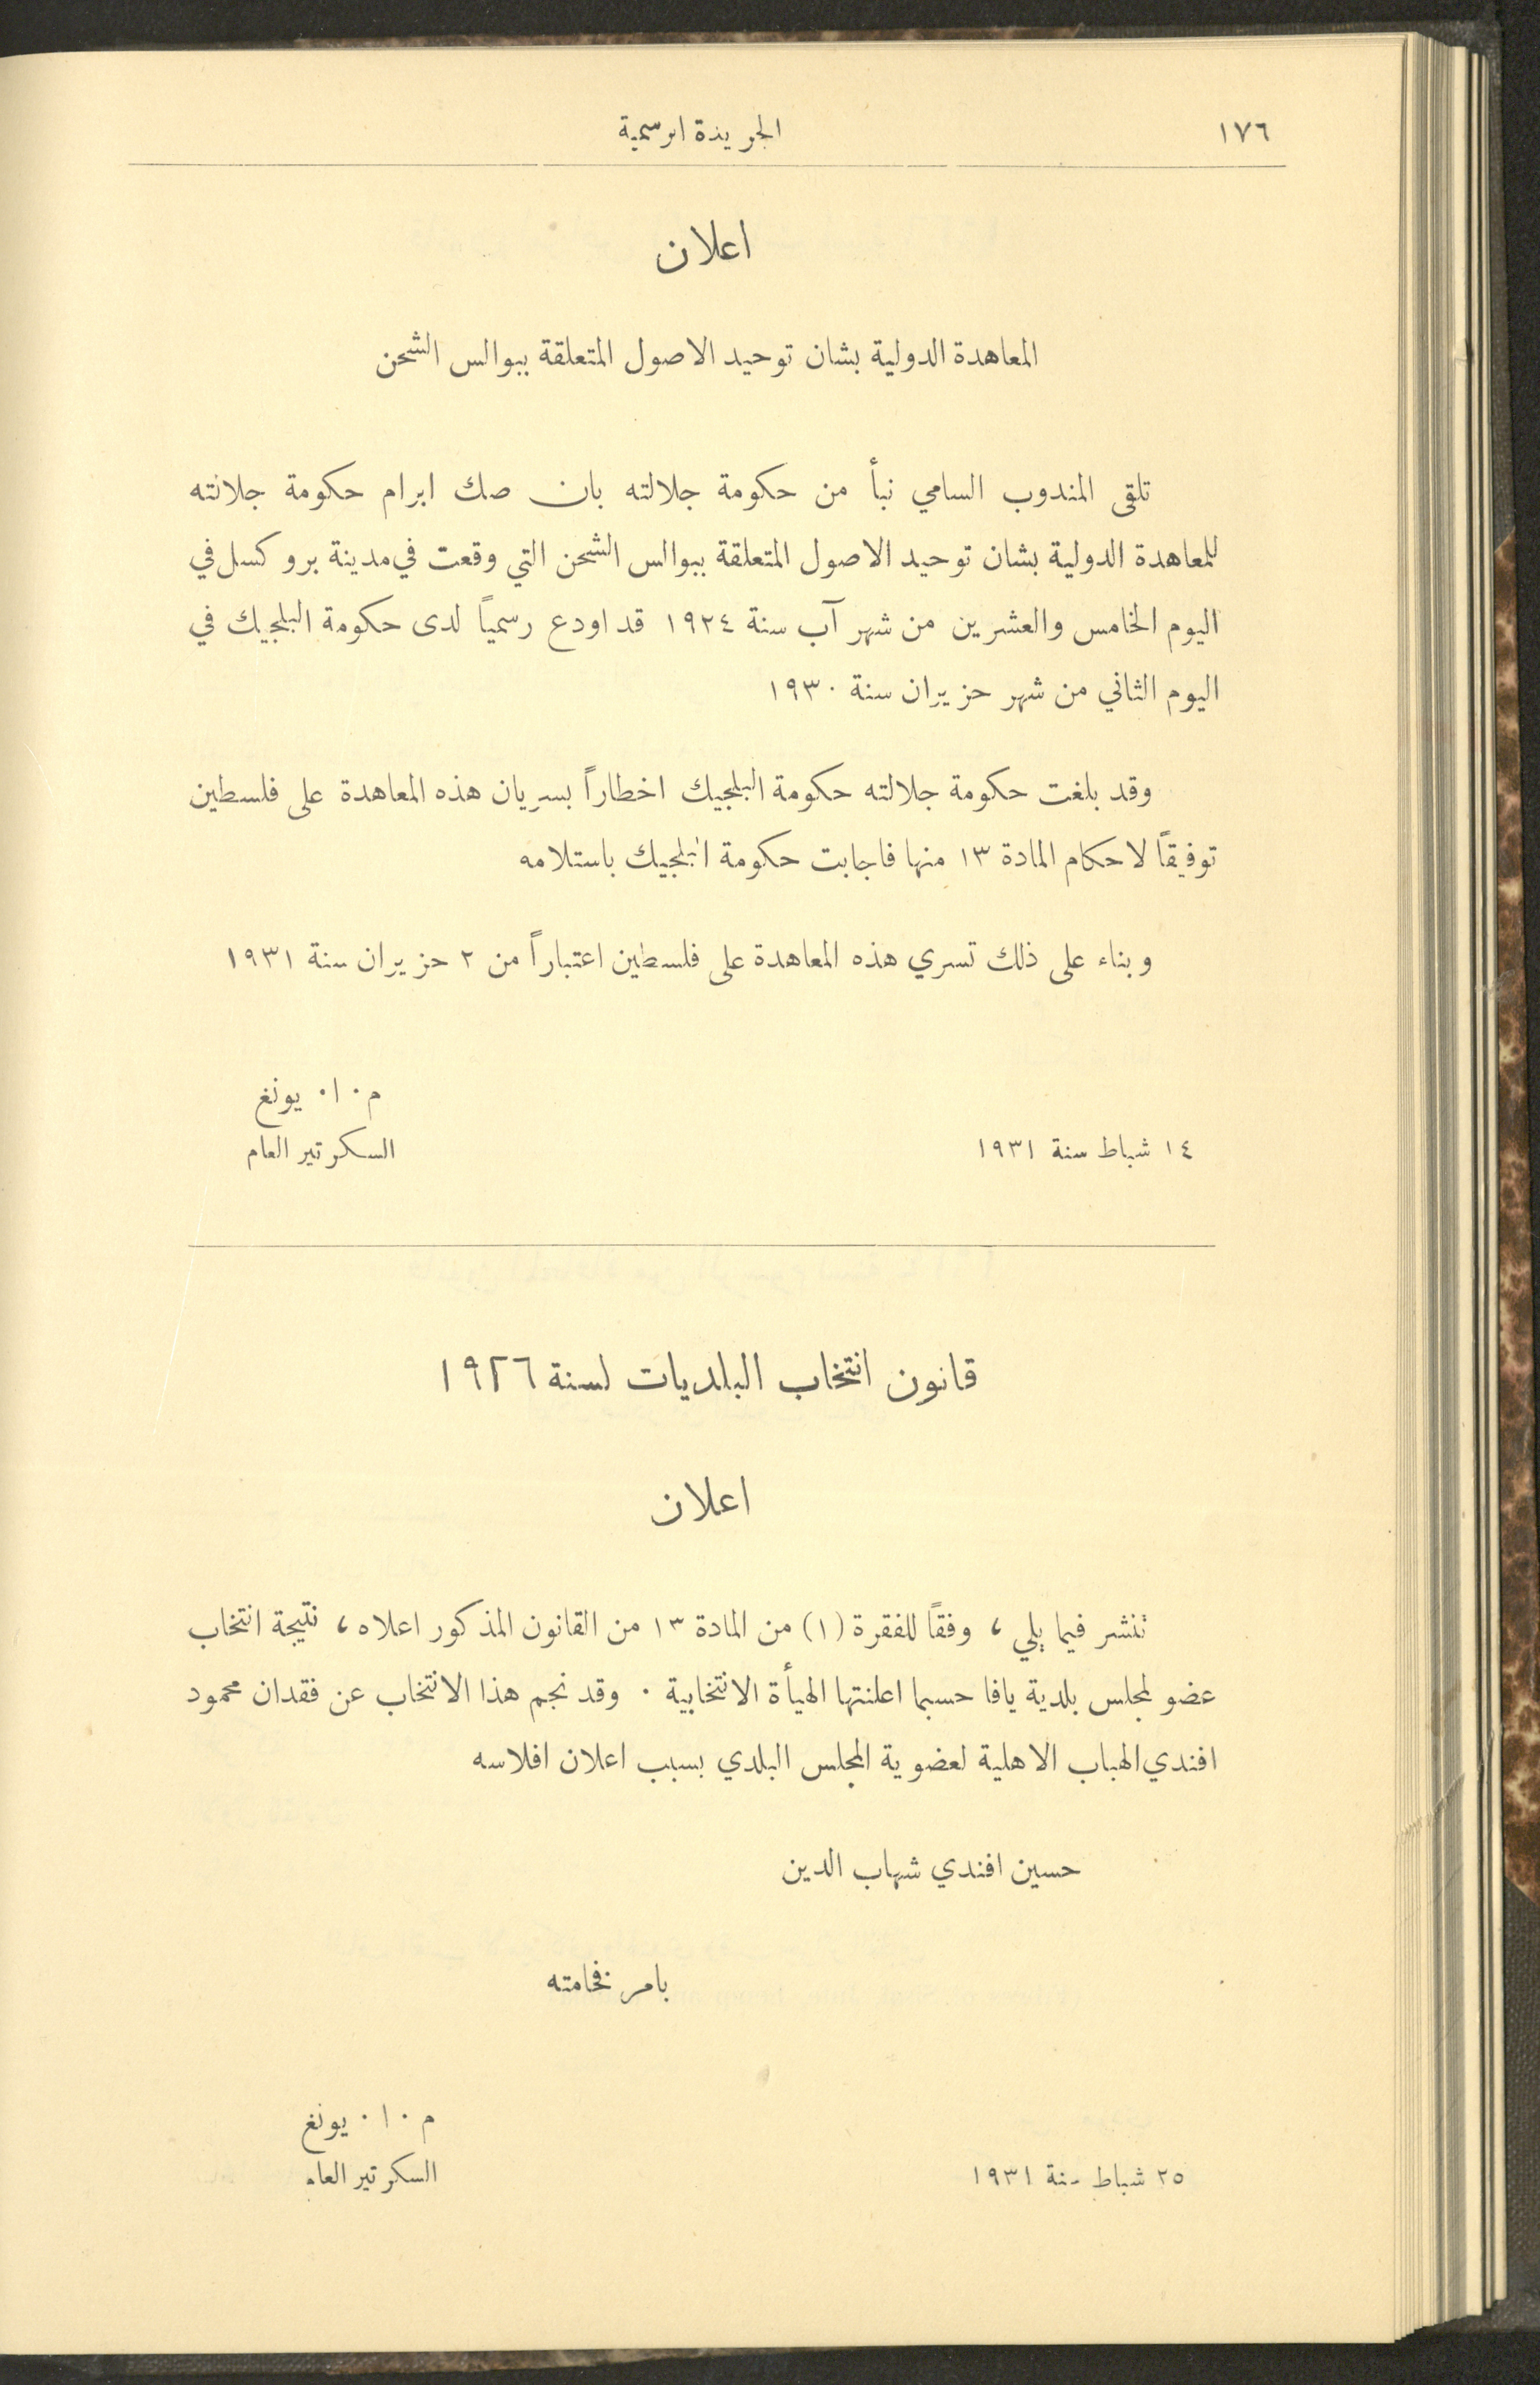 ١٧٦
الجريدة الرسمية
اعلان
المعاهدة الدولية بشان توحيد الاصول المتعلقة ببوالس الشحن
تلقى المندوب السامي نبأ من حكومة جلالته بان صك ابرام حكومة جلالته
للمعاهدة الدولية بشان توحيد الاصول المتعلقة ببوالس الشحن التي وقعت في مدينة بروكسل في
اليوم الخامس والعشرين من شهر آب سنة ١٩٢٤ قد اودع رسمياً لدى حكومة البلجيك في
اليوم الثاني من شهر حزيران سنة ١٩٣٠
وقد بلغت حكومة جلالته حكومة البلجيك اخطاراً بسريان هذه المعاهدة على فلسطين
توفيقاً لاحكام المادة ١٣ منها فاجابت حكومة البلجيك باستلامه
وبناء على ذلك تسري هذه المعاهدة على فلسطين اعتباراً من ٢ حزيران سنة ١٩٣١
م٠ا٠ يونغ
١٤ شباط سنة ١٩٣١ السكرتير العام
قانون انتخاب البلديات لسنة ١٩٢٦
اعلان
تنشر فيما يلي، وفقاً للفقرة (١) من المادة ١٣ من القانون المذكور اعلاه، نتيجة انتخاب
عضو لمجلس بلدية يافا حسبما اعلنتها الهيأة الانتخابية ٠ وقد نجم هذا الانتخاب عن فقدان محمود
افندي الهباب الاهلية لعضوية المجلس البلدي بسبب اعلان افلاسه
حسين افندي شهاب الدين
بامر فخامته
م٠ا٠ يونغ
٢٥ شباط سنة ١٩٣١ السكرتير العام